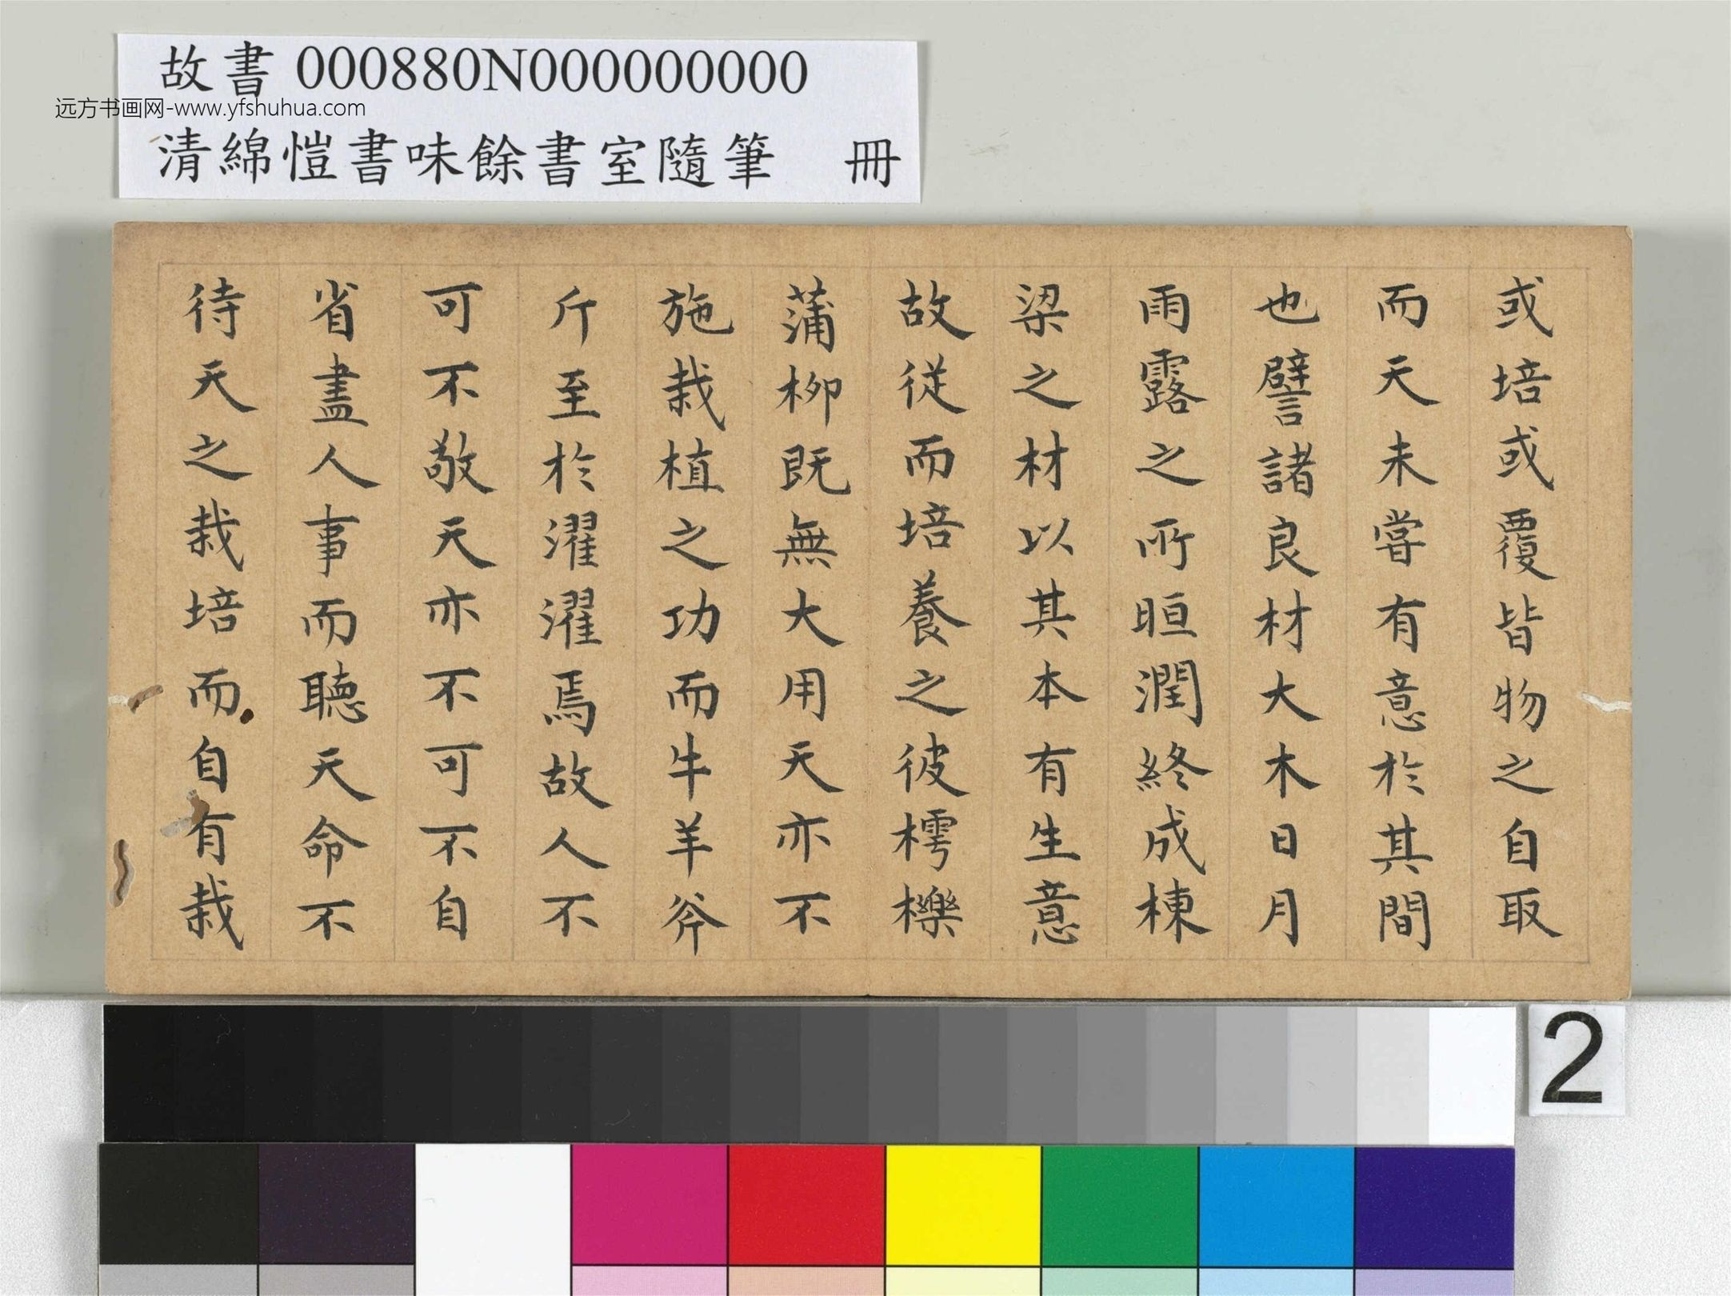 故書 000880N000000000
远方书画网-www.yfshuhua.com
清綿愷書味餘書室隨筆 冊
或培或覆皆物之自取
而天未嘗有意於其間
也譬諸良材大木日月
雨露之所晅潤終成棟
梁之材以其本有生意
故從而培養之彼樗櫟
蒲柳既無大用天亦不
施栽植之功而牛羊斧
斤至於濯濯焉故人不
可不敬天亦不可不自
省盡人事而聽天命不
待天之栽培而自有栽
2